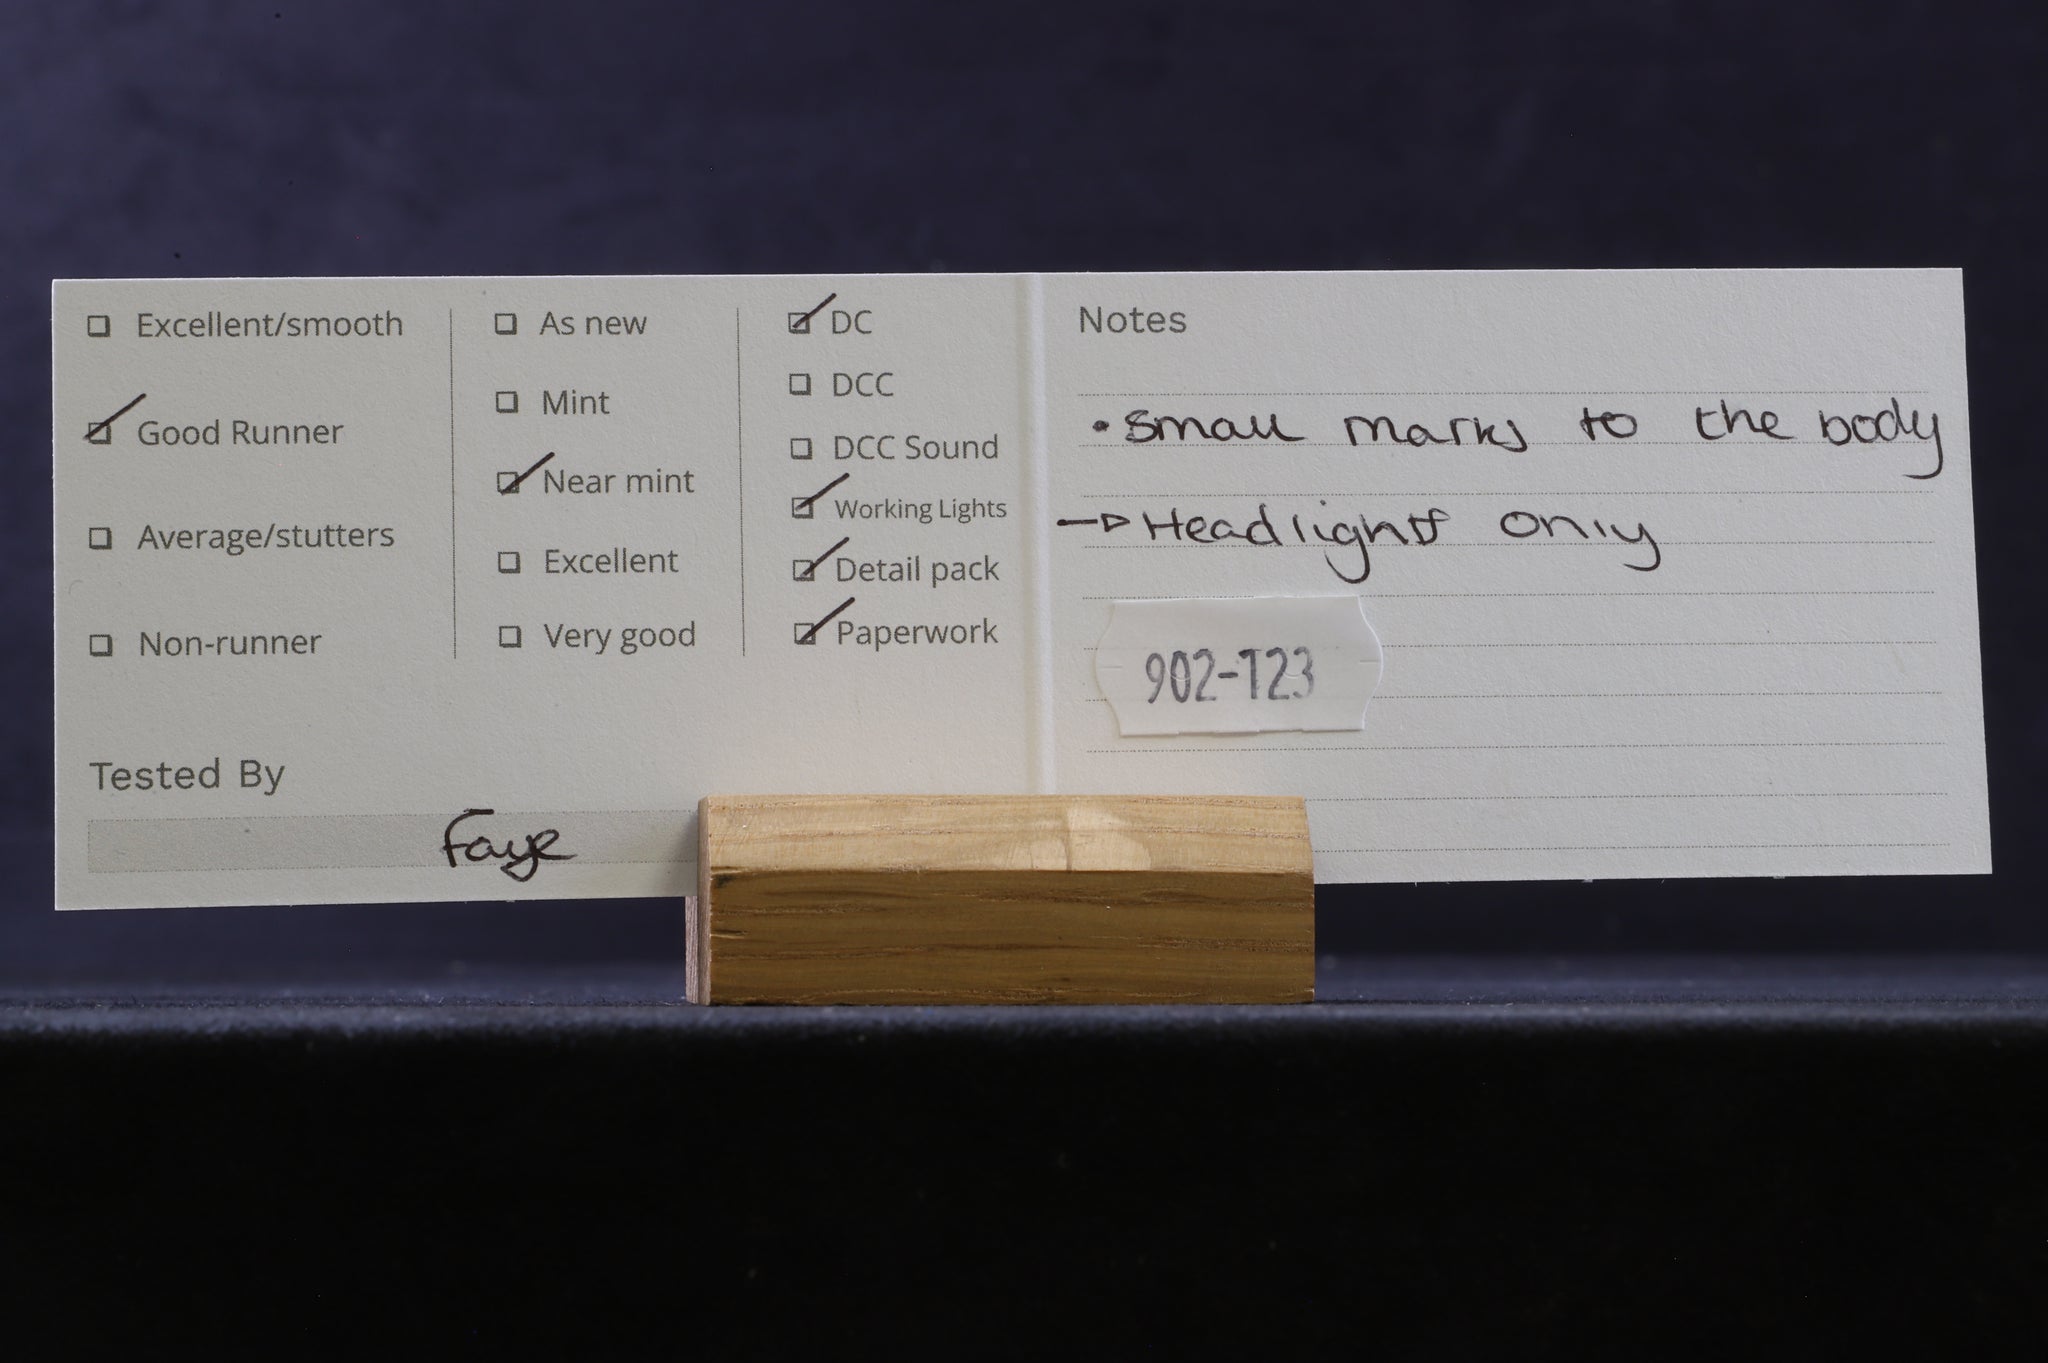 Excellent/smooth
Good Runner
Average/stutters
Non-runner
As new
Mint
Near mint
Excellent
Very good
DC
DCC
DCC Sound
Working Lights
Detail pack
Paperwork
Tested By
Faye
Notes
• Small marks to the body
→ Headlights only
902-T23